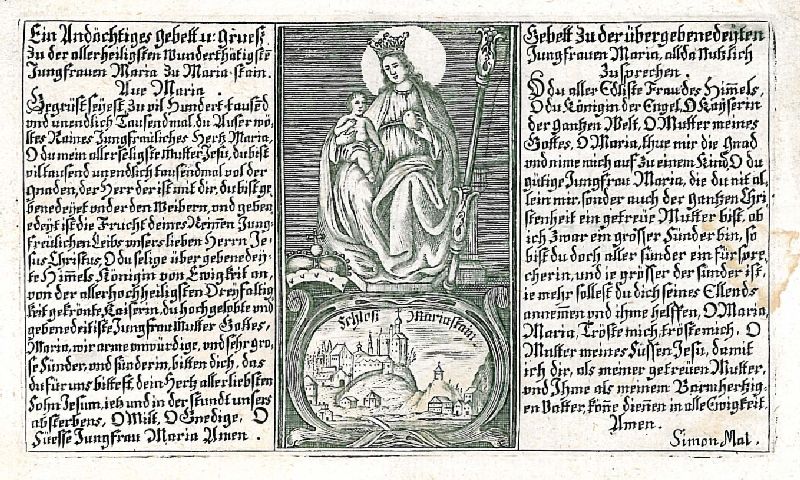 Ein Andöchtiges gebett u: grueß
zu der allerheiligsten wunderthätigstē
Jungfrauen Maria zu Maria stain.
Aue Maria.
Gegrüst seÿest zu vil Hundert taused
und unendlich Tausendmal, du Auser wö,
ltes Raines Jungfraüliches Hertz Maria,
O du mein allerseligste Mutter Jesu, du bist
viltausend unendlich tausendmal vol der
gnaden, der Herr der ist mit dir, du bist ge,
benedeÿet vnder den Weibern, und geben
edeÿt ist die Frucht deines Reinnen Jung,
freülichen Leibs vnsers lieben Herrn Je,
sus Christus, O du selige über gebenedeÿ,
te Himels Königin von Ewigkeit an,
von der allerhochheiligsten Dreÿfaltig
keit gekrönte Kaiserin, du hochgelobte und
gebenedeitiste Jungfrau Mutter Gottes,
Maria, wir arme vnwürdige, vnd sehr gro,
se Sünder, und sünderin, bitten dich, das
du für uns bittest dein Hertz allerliebsten
Sohn Jesum, ietz und in der stundt unsers
absterbens, O Milt, O Gnedige, O
Süesse Jungfrau Maria Amen.
Schloß Mariastain
Gebett zu der übergebenedeÿten
Jungfrauen Maria, allda Nutzlich
zu sprechen.
O du aller Edliste Frau des Himels,
O du Königin der Engel, O Kaÿserin
der gantzen Welt, O Mutter meines
Gottes, O Maria, thue mir die gnad
und nime mich auf zu einem Kind, O du
gütige Jungfrau Maria, die du nit al,
lein mir, sonder auch der gantzen Chri
stenheit ein getreüe Mutter bist, ob
ich zwar ein grösser Sünder bin, so
bist du doch aller sünder ein fürspre
cherin, und ie grösser der sünder ist,
ie mehr sollest du dich seines Ellends
annemen und ihme helffen, O Maria,
Maria, Tröste mich, tröste mich, O
Mutter meines Süssen Jesu, damit
ich dir, als meiner getreuen Mutter,
und Ihme als meinem Barmhertzig,
en Vatter, köne dienen in alle Ewigkeit
Amen.
Simon Mal.